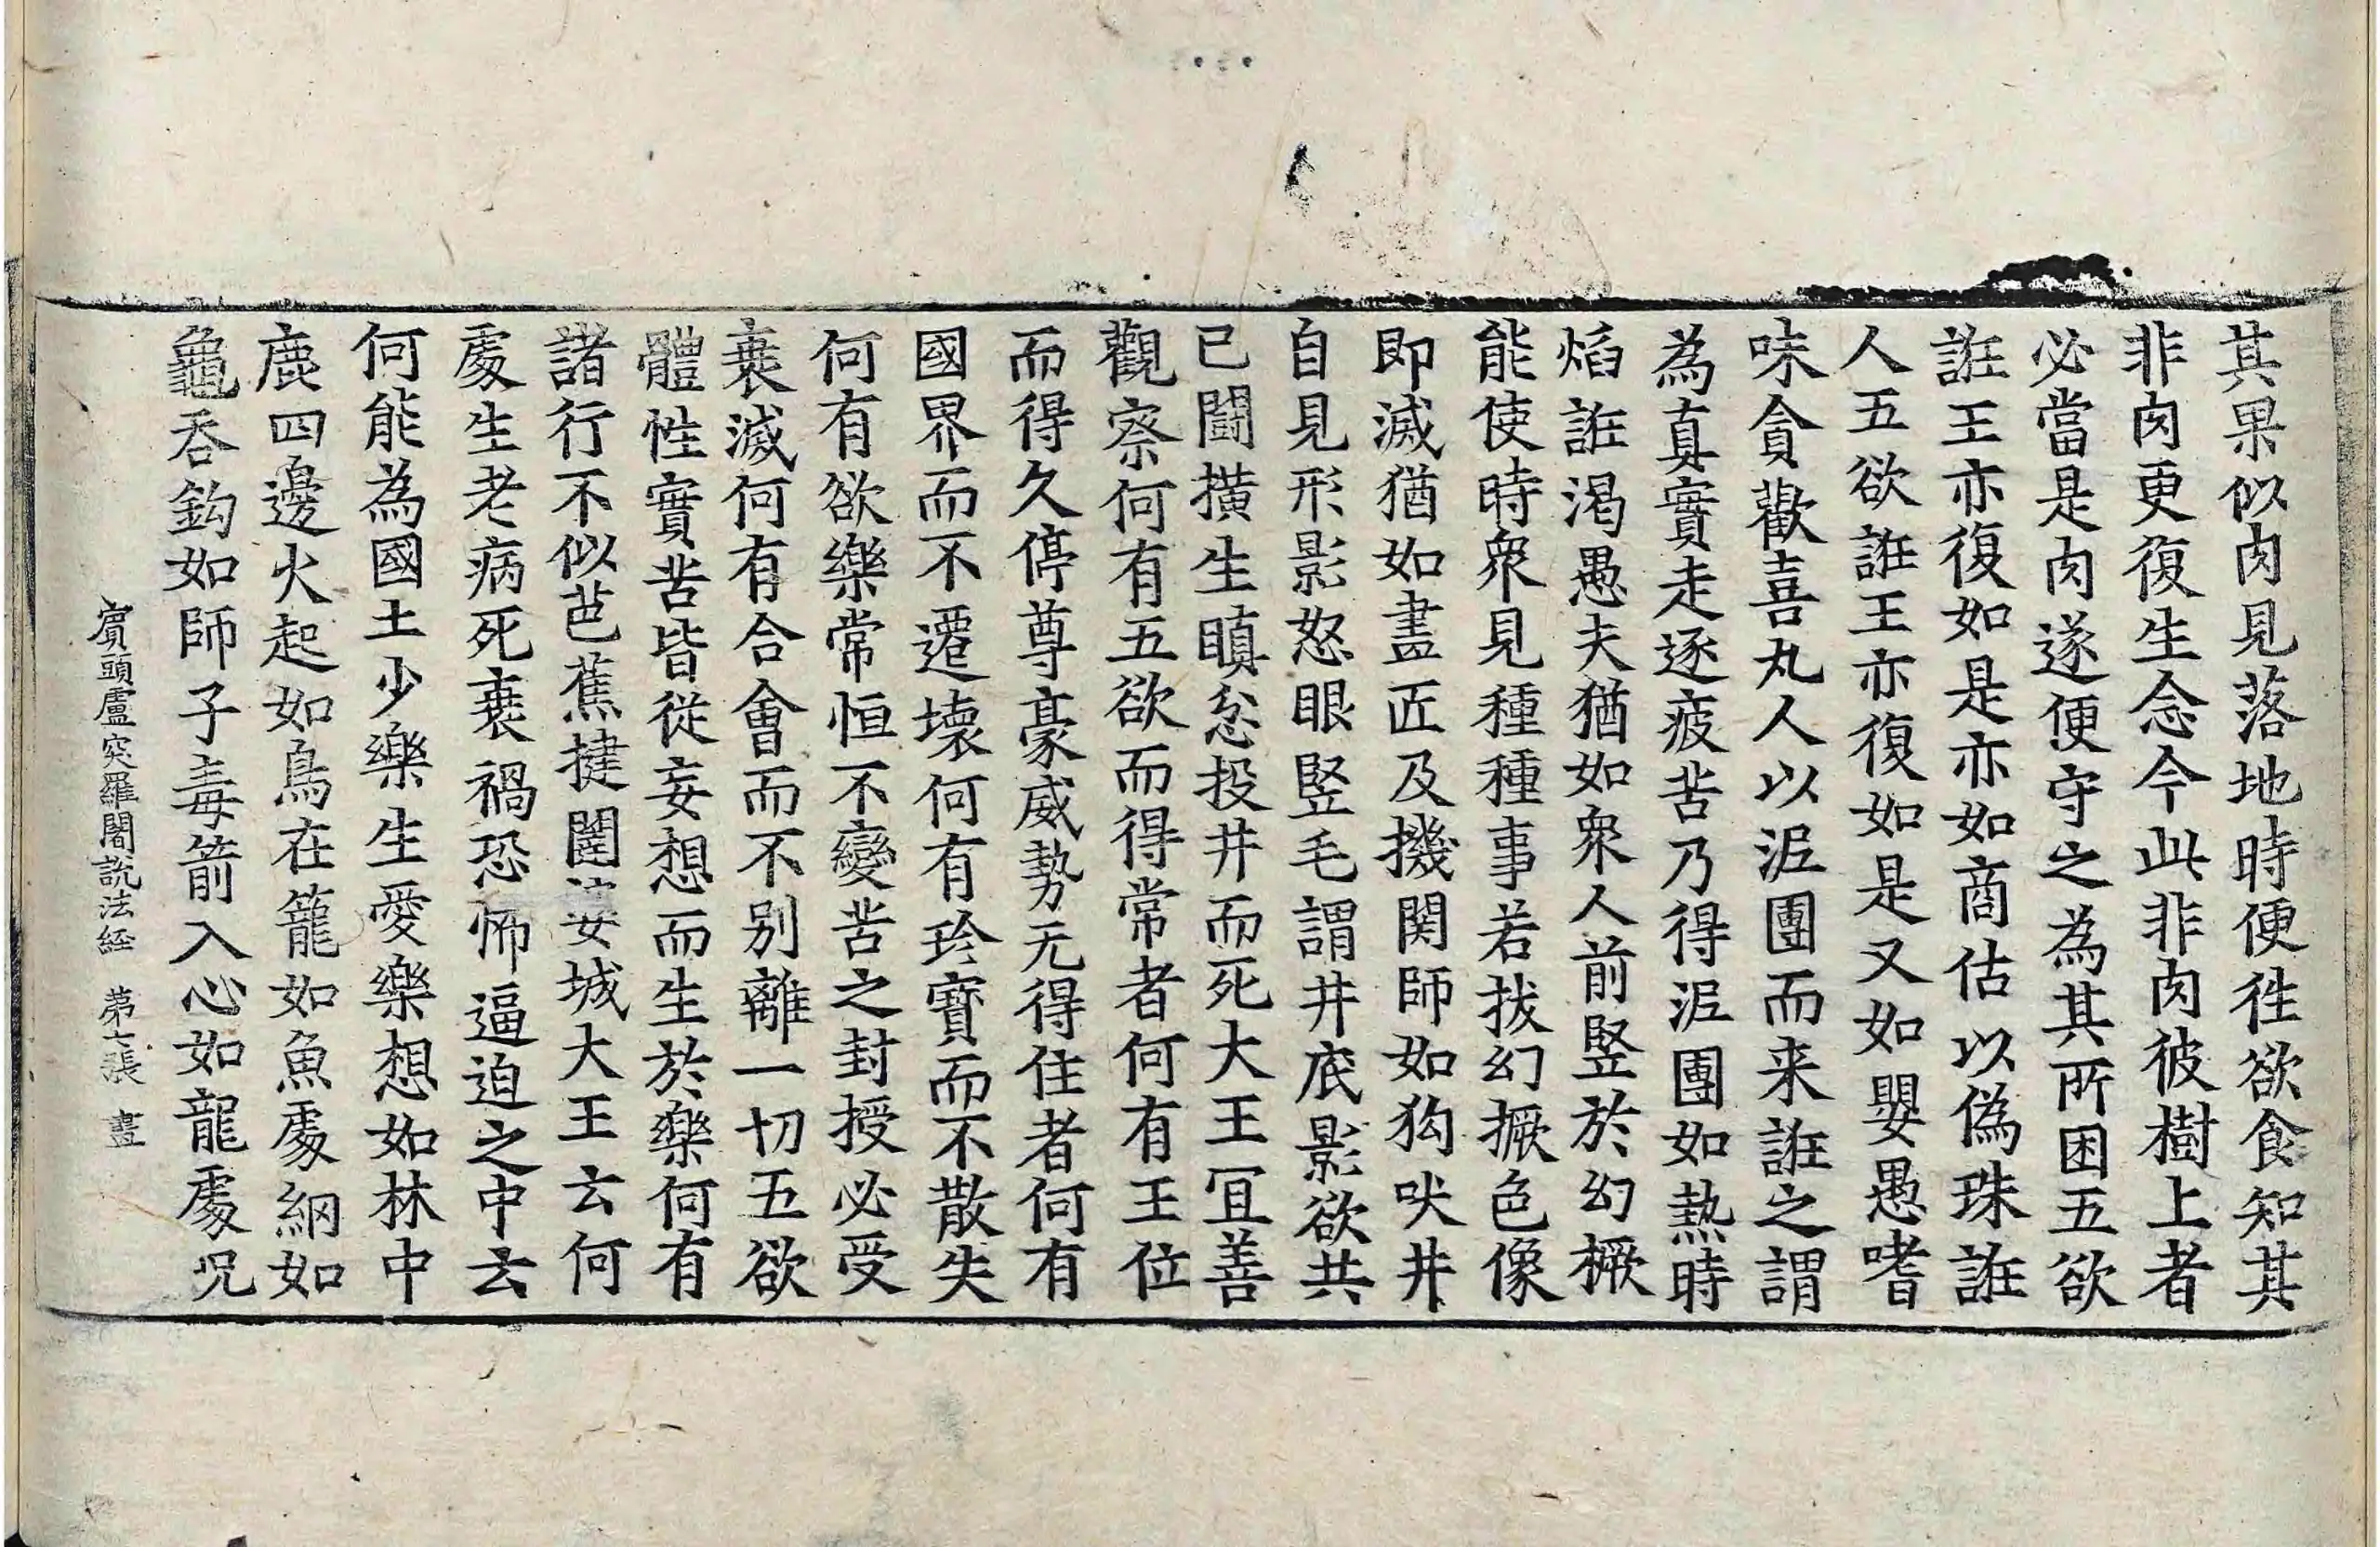 其果似肉見落地時便徃欲食知其
非肉更復生念今此非肉彼樹上者
必當是肉遂便守之為其所困五欲
誑王亦復如是亦如商估以偽珠誑
人五欲誑王亦復如是又如嬰愚嗜
味貪歡喜丸人以泥團而来誑之謂
為真實走逐疲苦乃得泥團如熱時
焰誑渴愚夫猶如衆人前竪於幻橛
能使時衆見種種事若拔幻橛色像
即滅猶如畫匠及機関師如狗吠井
自見形影怒眼竪毛謂井底影欲共
已鬪横生瞋忿投井而死大王冝善
觀察何有五欲而得常者何有王位
而得久停尊豪威勢无得住者何有
國界而不遷壞何有珍寶而不散失
何有欲樂常恒不變苦之封授必受
衰滅何有合會而不别離一切五欲
體性實苦皆從妄想而生於樂何有
諸行不似芭蕉揵闥婆城大王云何
處生老病死衰禍恐怖逼迫之中云
何能為國土少樂生愛樂想如林中
鹿四邊火起如鳥在籠如魚處網如
龜吞鈎如師子毒箭入心如龍處呪
賔頭盧突羅闍說法経 第七張 畫